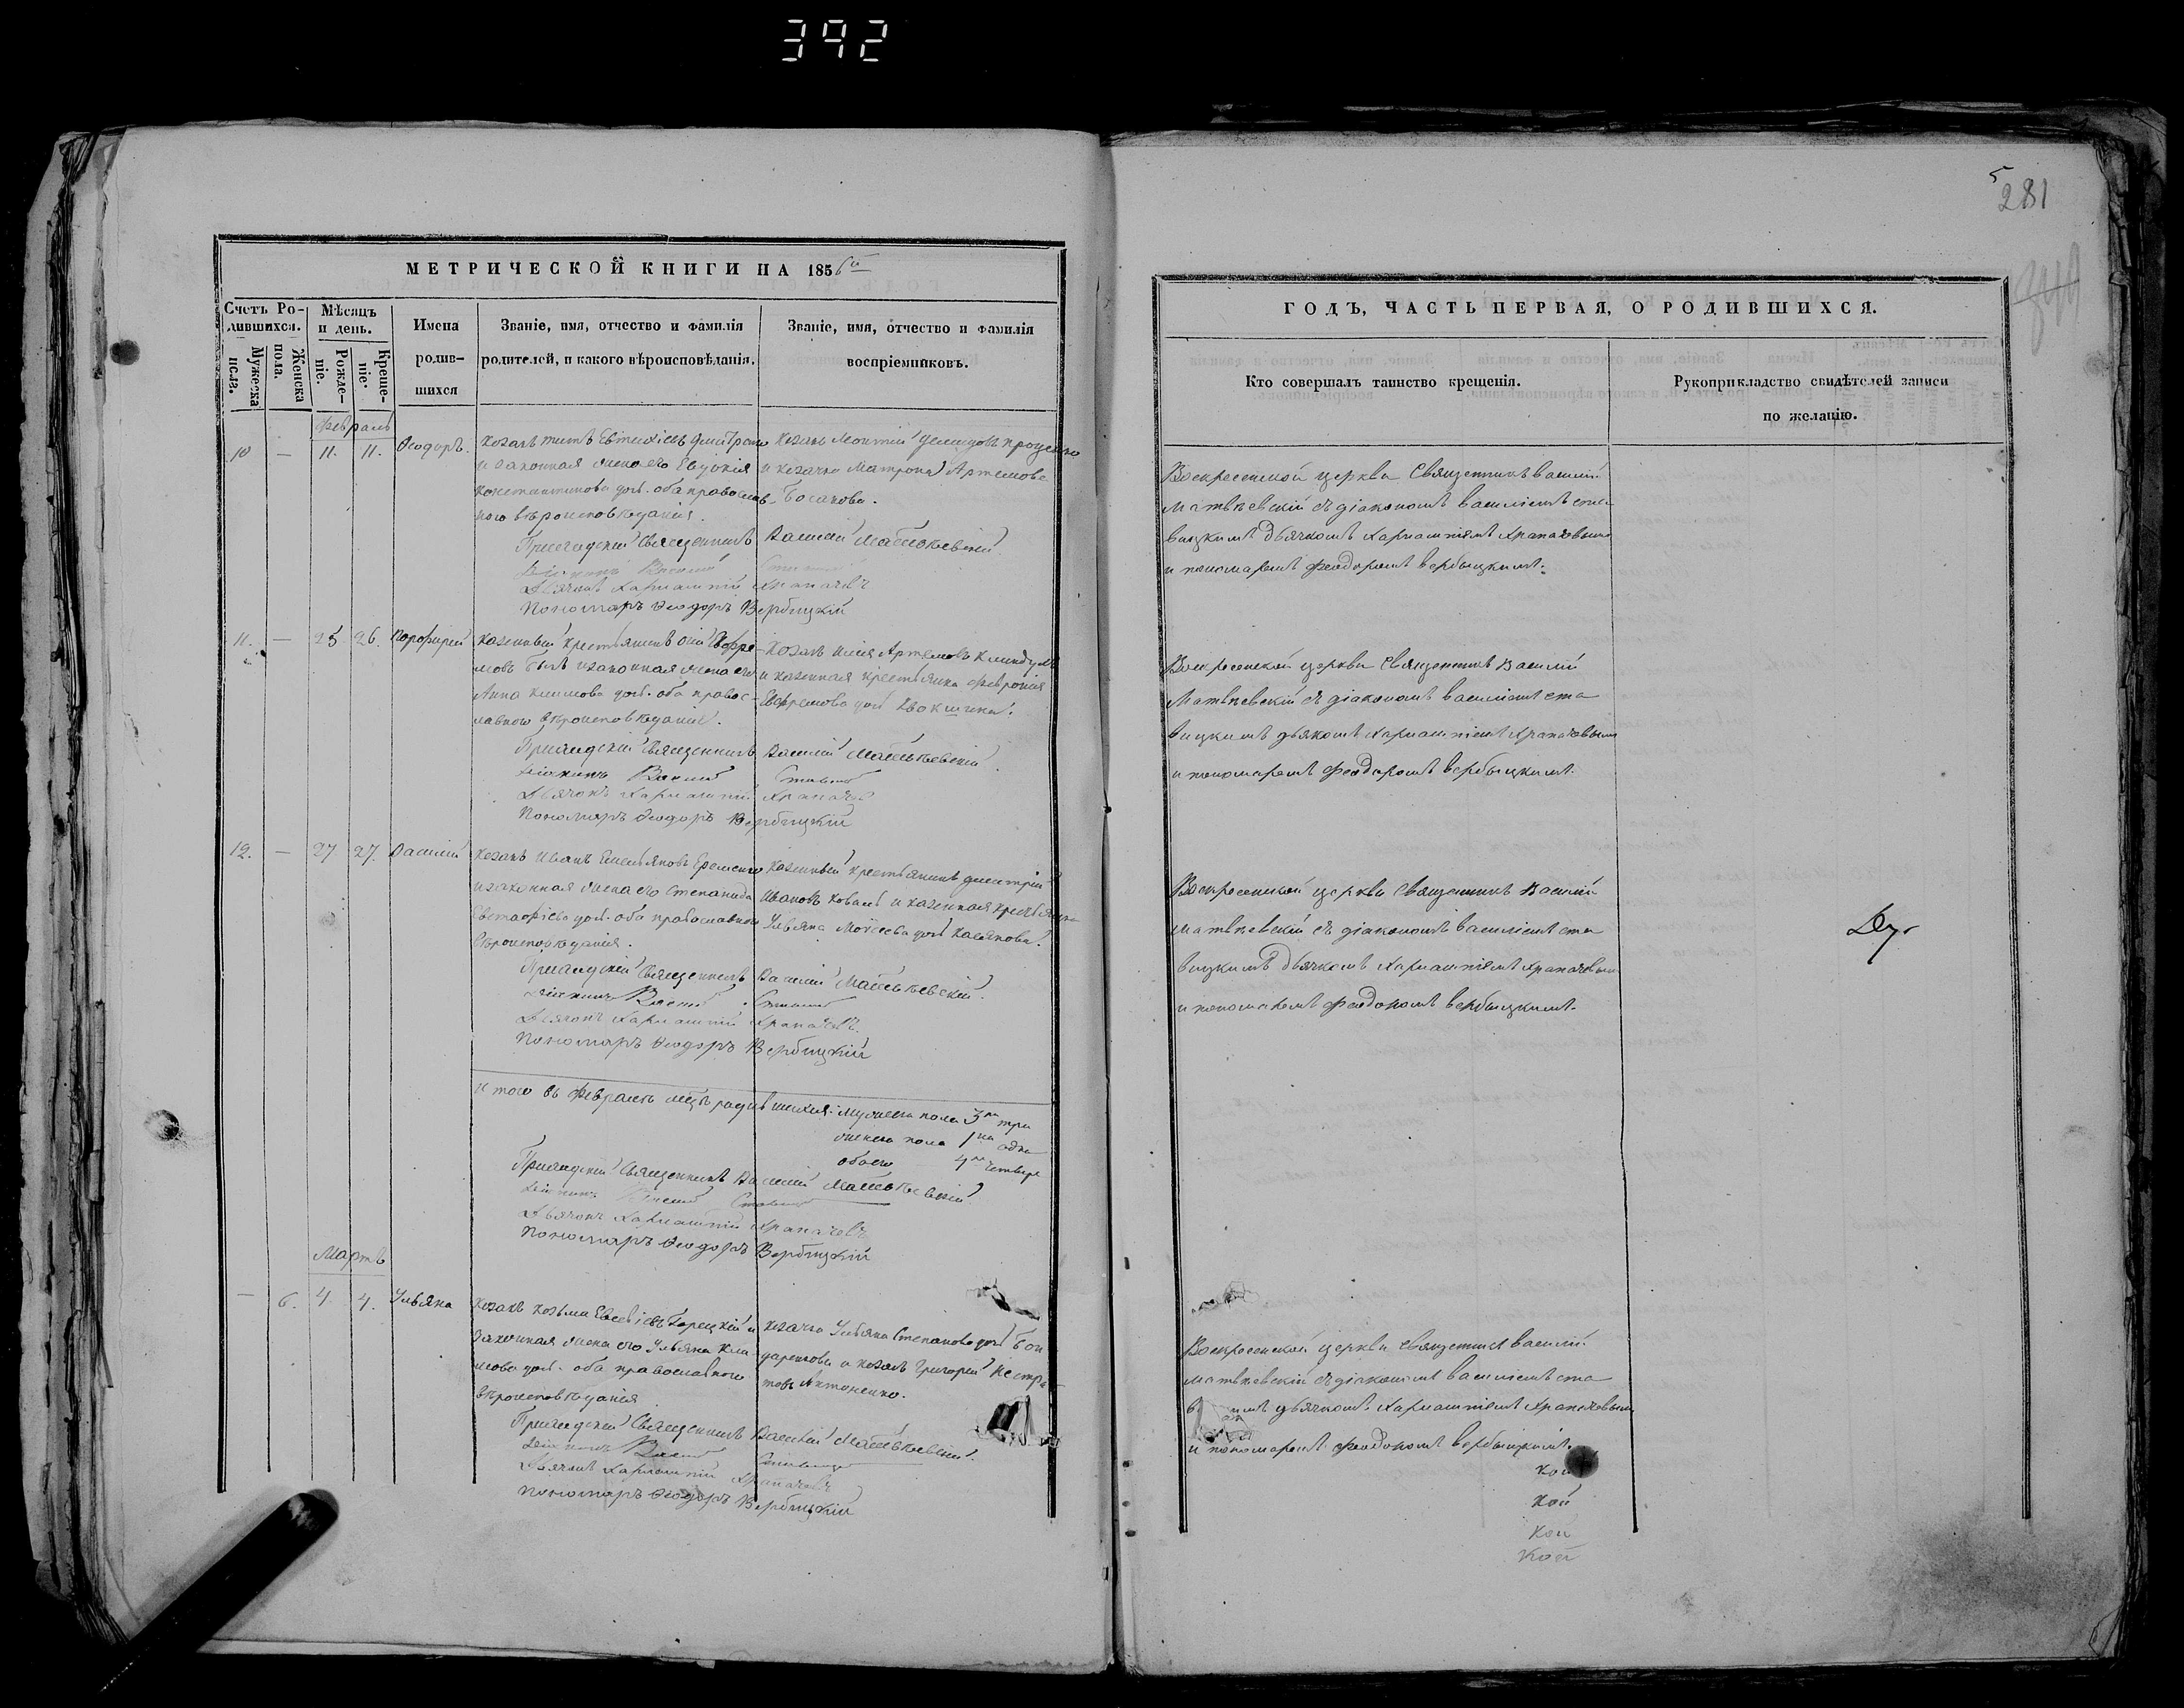 392
5
281
МЕТРИЧЕСКОЙ КНИГИ НА 1856й
Счетъ Родившихся.
Мужеска пола.
Женска пола.
Мѣсяцъ и день.
Рожденіе.
Крещеніе.
Имена родившихся
Званіе, имя, отчество и фамилія
родителей, и какого вѣроисповѣданія.
Званіе, имя, отчество и фамилія
воспріемниковъ.
Февраль
10 — 11. 11. Ѳеодоръ.
Козакъ Титъ Евтихіевъ Дмитренко
и законная жена его Евдокія
Константинова доч. оба православ-
ного вѣроисповѣданія.
Козакъ Леонтій Демидовъ Проценко
и козачка Матрона Артемова
Босакова.
Приходскій Священникъ Василій Матвѣевскій
Діаконъ Василій
Дьячокъ Харлампій Храпачевъ
Пономаръ Ѳеодоръ Вербицкій
11. — 25 26. Порфирій
Казенный крестьянинъ Евфре-
мовъ и законная жена его
Анна Климова доч. оба правос-
лавного вѣроисповѣданія.
Козакъ Илія Артемовъ
и казенная крестьянка Феѵронія
Евфремова доч.
Приходскій Священникъ Василій Матвѣевскій
Діаконъ Василій
Дьячокъ Харлампій Храпачевъ
Пономаръ Ѳеодоръ Вербицкій
12. — 27 27. Василій
Козакъ Иванъ Емельяновъ Еременко
и законная жена его Степанида
Евстафіева доч. оба православного
вѣроисповѣданія.
Казенный крестьянинъ Димитрій
Ивановъ Коваль и казенная крестьянка
Ульяна Моисеева доч. Касянова.
Приходскій Священникъ Василій Матвѣевскій.
Діаконъ Василій
Дьячокъ Харлампій Храпачевъ.
Пономаръ Ѳеодоръ Вербицкій
Итого въ Февралѣ мцѣ родившихся. мужеска пола 3 три
женска пола 1 одна
обоего 4 четыре
Приходскій Священникъ Василій Матвѣевскій
Діаконъ Василій
Дьячокъ Харлампій Храпачевъ
Пономаръ Ѳеодоръ Вербицкій
Мартъ
— 6. 4 4. Ульяна
Козакъ Козьма Евсевіевъ Горецкій и
законная жена его Ульяна Кли-
мова доч. оба православного
вѣроисповѣданія
Козачка Ульяна Степанова доч. Бон
даренкова и козакъ Григорій
Антоненко.
Приходскій Священникъ Василій Матвѣевскій.
Діаконъ Василій
Дьячокъ Харлампій Храпачевъ
Пономаръ Ѳеодоръ Вербицкій
ГОДЪ, ЧАСТЬ ПЕРВАЯ, О РОДИВШИХСЯ.
Кто совершалъ таинство крещенія.
Рукоприкладство свидѣтелей записи
по желанію.
Воскресенской церкви Священникъ Василій
Матвѣевскій съ діакономъ Василіемъ Ста
вицкимъ дьячкомъ Харлампіемъ Храпачовымъ
и пономаремъ Феодоромъ Вербицкимъ.
Воскресенской церкви Священникъ Василій
Матвѣевскій съ діакономъ Василіемъ Ста
вицкимъ дьякомъ Харлампіемъ Храпачовымъ
и пономаремъ Феодоромъ Вербицкимъ.
Воскресенской церкви Священникъ Василій
Матвѣевскій съ діакономъ Василіемъ Ста
вицкимъ дьячкомъ Харлампіемъ Храпачовымъ
и пономаремъ Феодоромъ Вербицкимъ.
Воскресенской церкви Священникъ Василій
Матвѣевскій съ діакономъ Василіемъ Ста
дьячкомъ Харлампіемъ Храпачовымъ
и пономаремъ Феодоромъ Вербицкимъ.
кой
кой
кой
кой